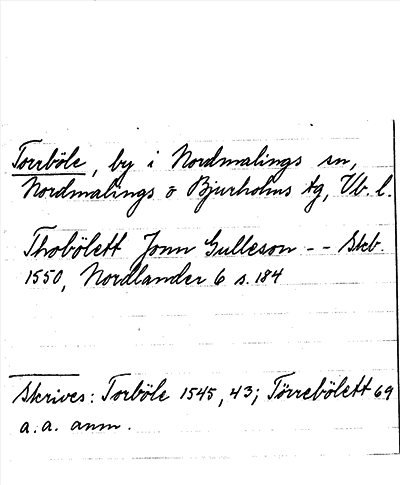 Torrböle, by i Nordmalings sn,
Nordmalings o Bjurholms tg, Vb. l.
Thobölett Jonn Gulleson -- Skb.
1550, Nordlander 6 s. 184
Skrives: Torböle 1545, 43; Törrebölett 69
a. a. anm.